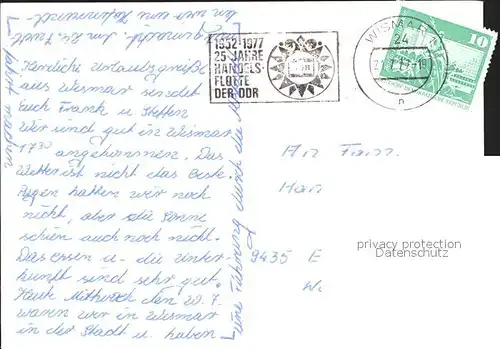 1952-1977
25 JAHRE
HANDELS-
FLOTTE
DER DDR
WISMAR
24
10
Herzliche Urlaubsgrüße
aus Wismar sendet
Euch Frank u. Steffen
Wir sind gut in Wismar
17³⁰ angekommen. Das
Wetter ist nicht das beste.
Regen hatten wir noch
nicht, aber die Sonne
schien auch noch nicht.
Das essen u. die Unter-
kunft sind sehr gut.
Heute Mittwoch den 20. 7.
waren wir in Wismar
in der Stadt u. haben
eine Führung durch die
gemacht. Im
An Fam.
Han
9435 E
privacy protection
Datenschutz